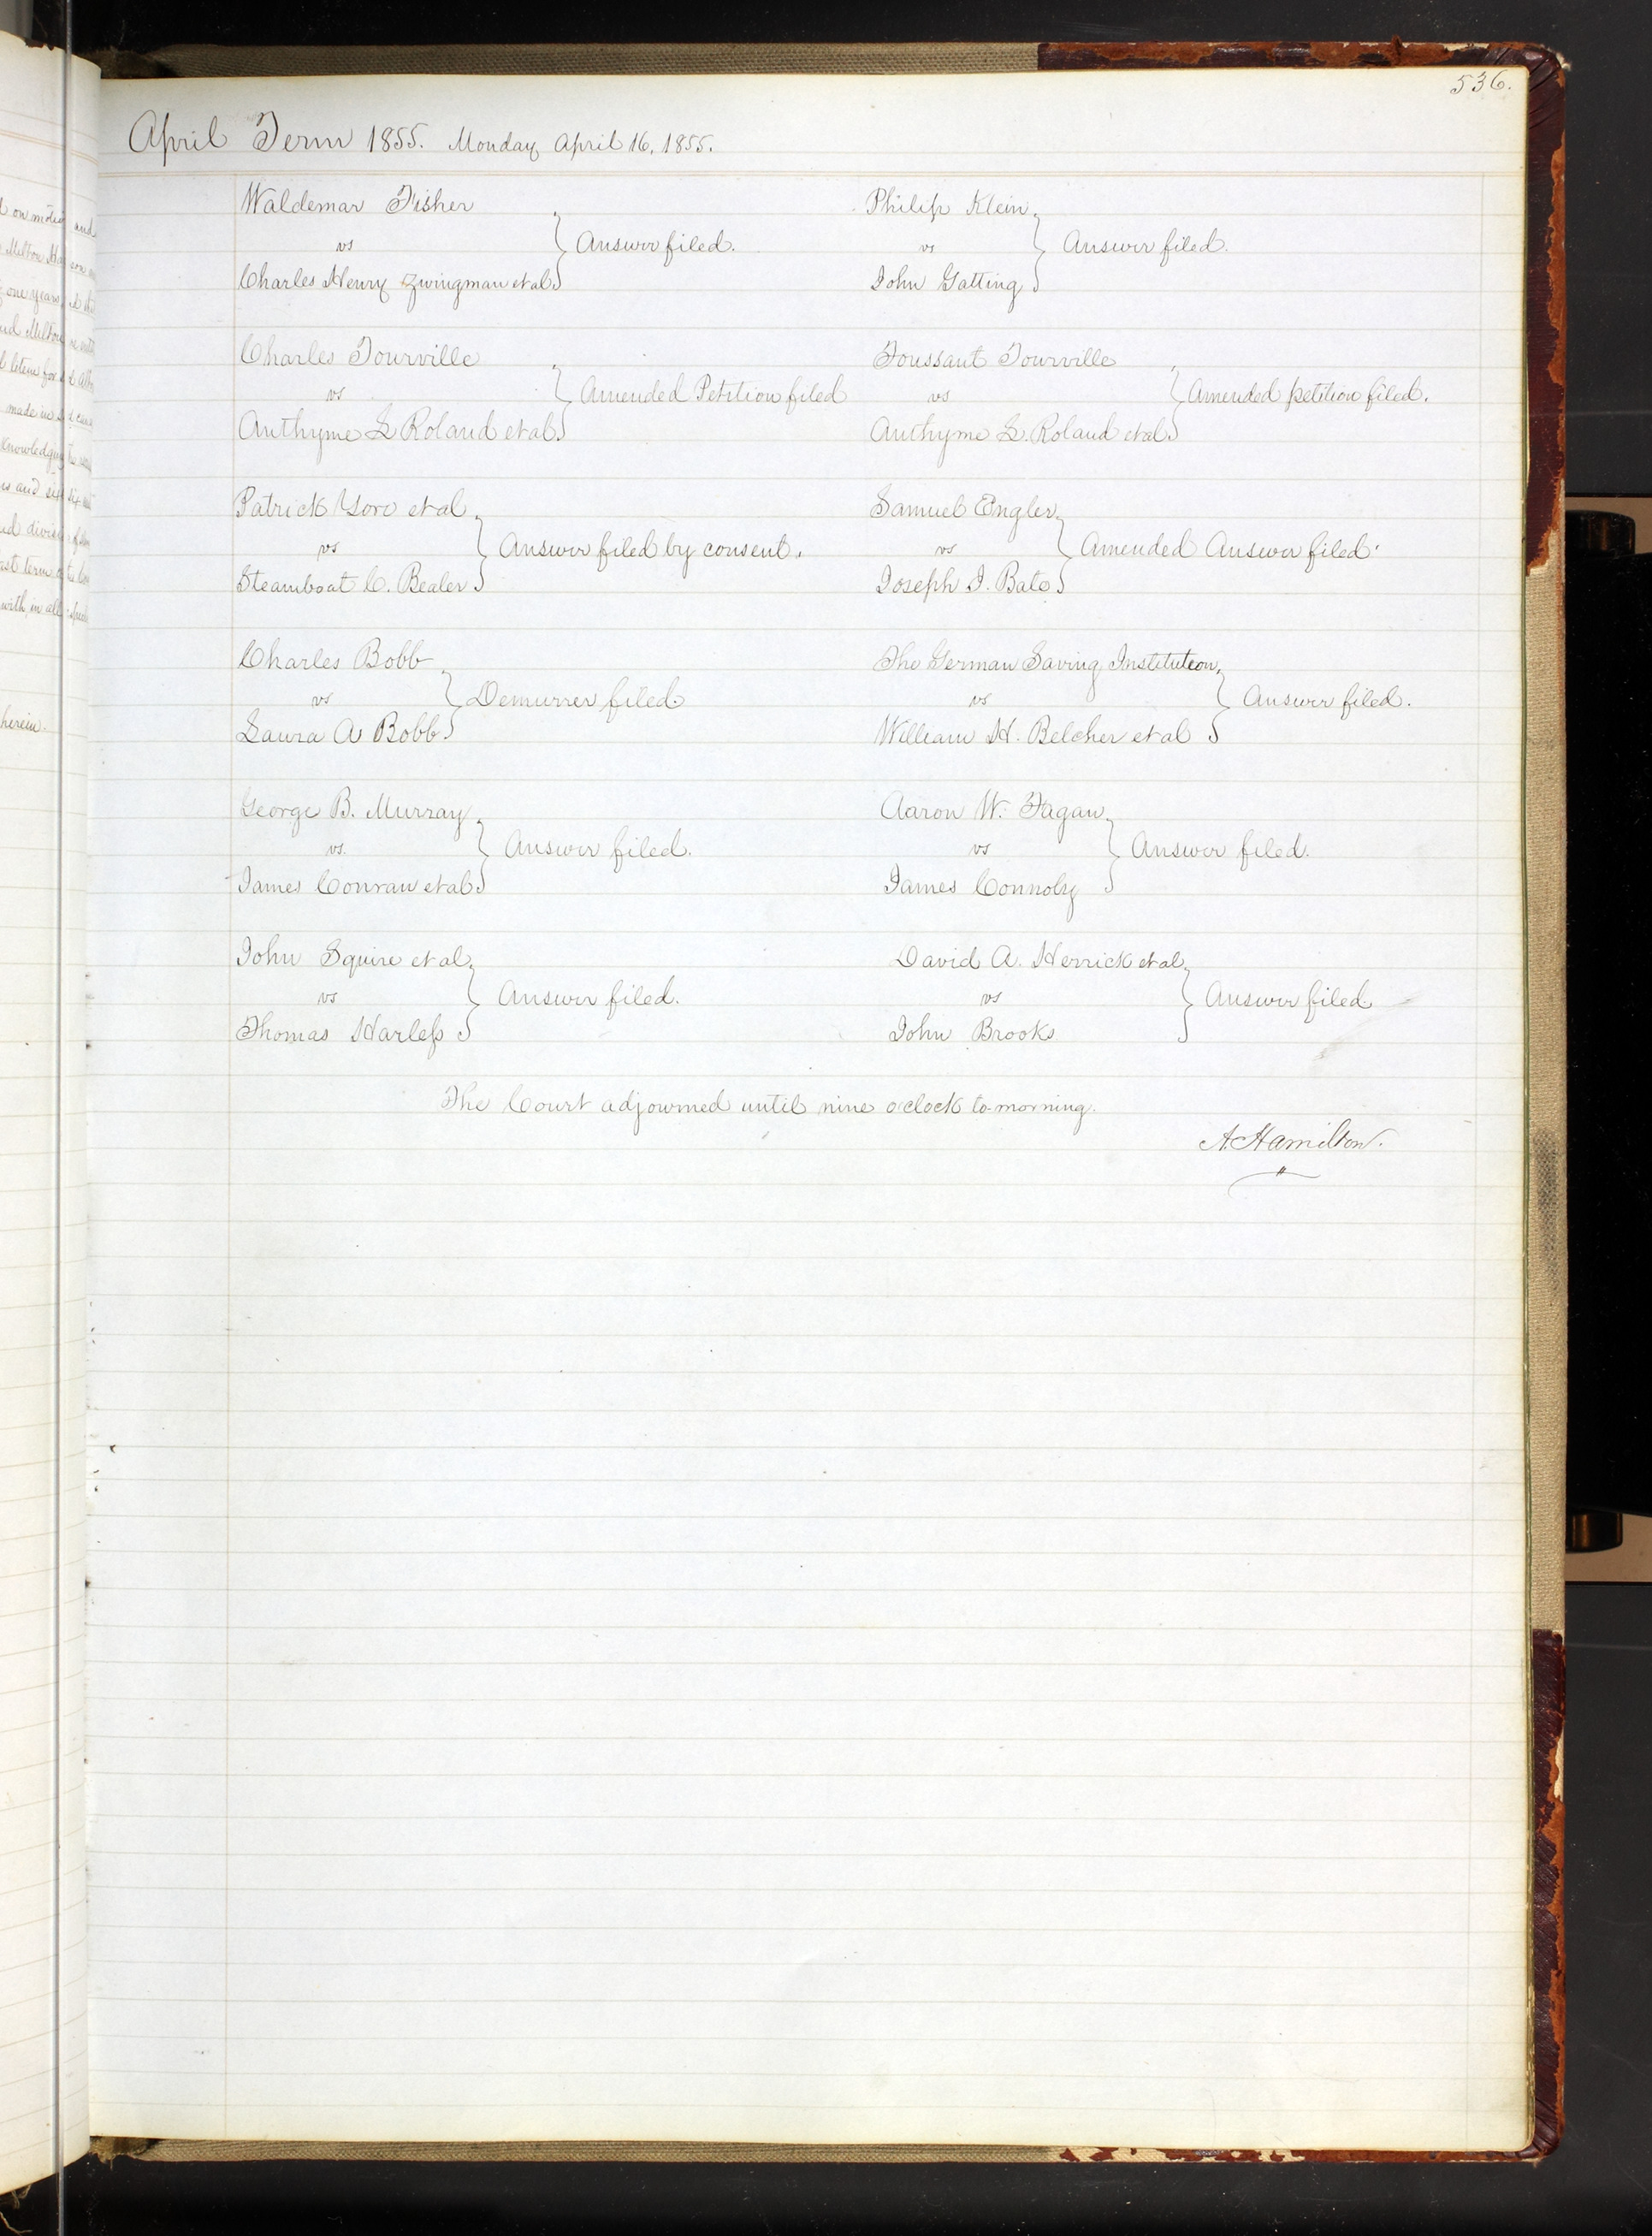 536.
April Term 1855. Monday April 16, 1855.
Waldemar Fisher
vs
Charles Henry Zwingman et al
Answer filed.
Philip Klein
vs
John Gatting
Answer filed.
Charles Tourville
vs
Anthyme L Roland et al
Amended Petition filed
Toussant Tourville
vs
Anthyme L. Roland et al
Amended petition filed.
Patrick Yore et al
vs
Steamboat C. Bealer
Answer filed by consent.
Samuel Engler
vs
Joseph J. Bate
Amended Answer filed.
Charles Bobb
vs
Laura A Bobb
Demurrer filed
The German Saving Institution
vs
William H. Belcher et al
Answer filed.
George B. Murray
vs.
James Conran et al
Answer filed.
Aaron W. Fagan
vs
James Connoly
Answer filed.
John Squire et al
vs
Thomas Harless
Answer filed.
David A. Herrick et al
vs
John Brooks
Answer filed
The Court adjourned until nine o'clock to-morning.
A. Hamilton.
herein.